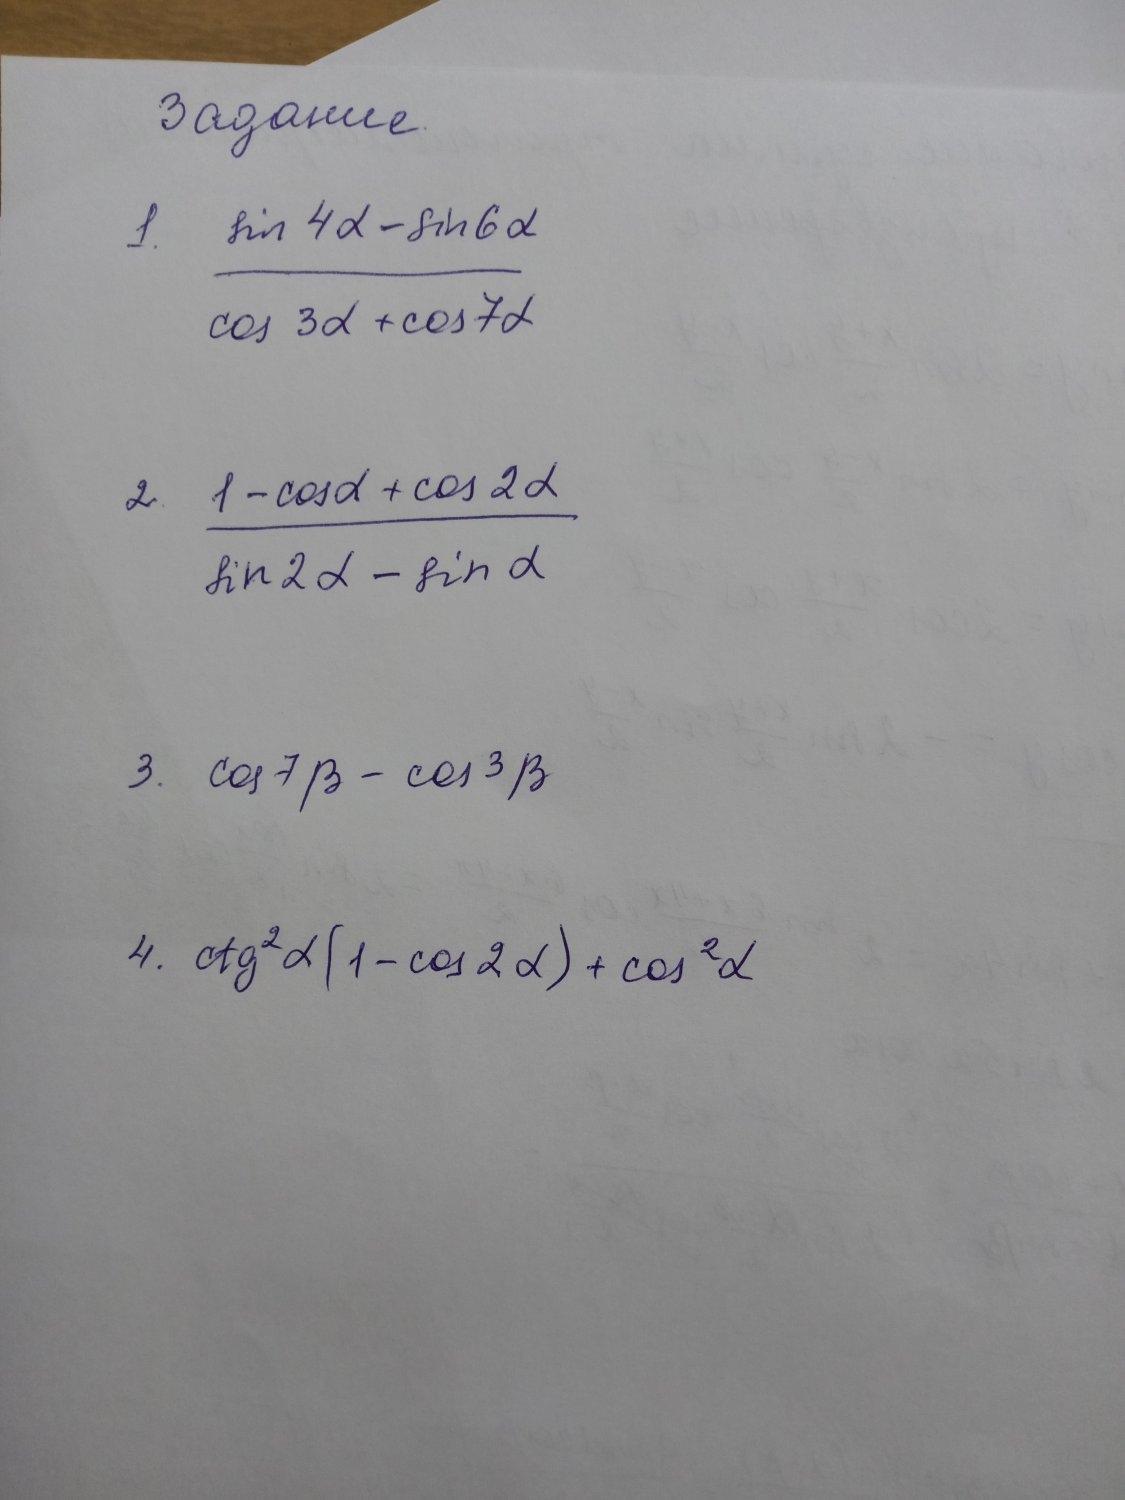 Задание.
1. sin 4α - sin6α
cos 3α + cos7α
2. 1 - cosα + cos 2α
sin2α - sin α
3. cos7β - cos3β
4. ctg²α(1 - cos2α) + cos²α